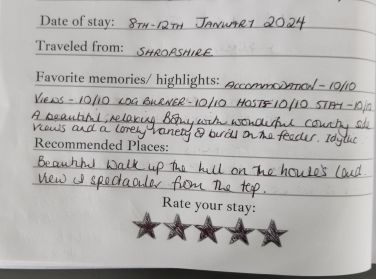 Date of stay: 8TH-12TH JANUARY 2024
Traveled from: SHROPSHIRE
Favorite memories/ highlights: ACCOMMODATION - 10/10
VIEWS - 10/10 LOG BURNER - 10/10 HOSTS 10/10 STAY - 10/10
A beautiful, relaxing Bothy with wonderful country side
views and a lovely variety of birds on the feeder. Idyllic
Recommended Places:
Beautiful walk up the hill on the house's land.
View is spectacular from the top.
Rate your stay: